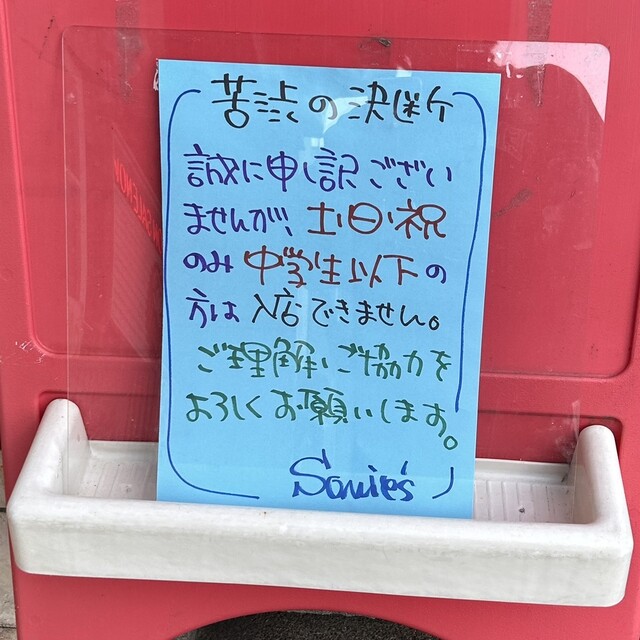 苦渋の決断
誠に申し訳ござい
ませんが、土・日・祝
のみ中学生以下の
方は入店できません。
ご理解、ご協力を
よろしくお願いします。